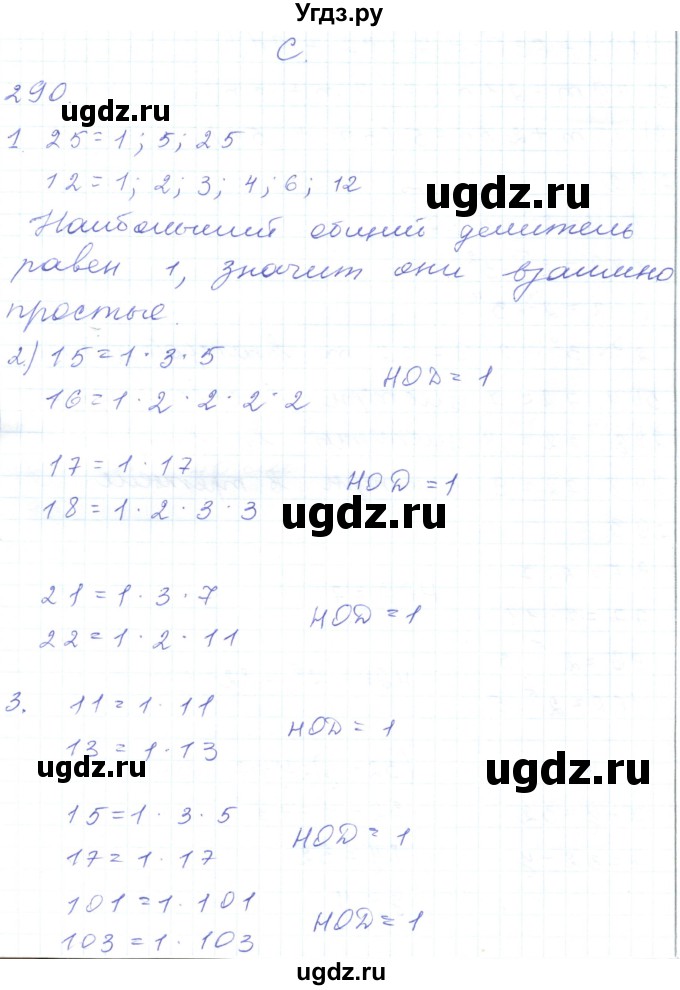 Угдз.ру
С.
290
ugdz.ru
1. 25 = 1; 5; 25
12 = 1; 2; 3; 4; 6; 12
ugdz.ru
Наибольший общий делитель
равен 1, значит они взаимно
простые.
2) 15 = 1 · 3 · 5
НОД = 1
16 = 1 · 2 · 2 · 2 · 2
17 = 1 · 17
НОД = 1
18 = 1 · 2 · 3 · 3
ugdz.ru
21 = 1 · 3 · 7
НОД = 1
22 = 1 · 2 · 11
3. 11 = 1 · 11
НОД = 1
13 = 1 · 13
ugdz.ru
ugdz.ru
15 = 1 · 3 · 5
НОД = 1
17 = 1 · 17
101 = 1 · 101
НОД = 1
103 = 1 · 103
ugdz.ru